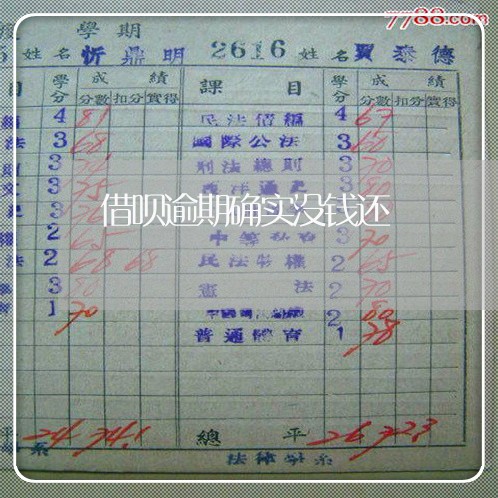 7788.com
學期
姓名 忻鼎明 2616 姓名 賈泰德
目 學分 成績 課目 學分 成績
分數 扣分 實得 分數 扣分 實得
4 81 民法債編 4 67
法 3 68 國際公法 3 60
3 刑法總則 3 70
3 75 西洋通史 3 80
3
借呗逾期确实没钱还
2 65 3 70
法 2 68 68 民法物權 2 65
3 80 憲法 2 70
1 70 2 80
普通體育 1 78
平 24 74.1 總平 26 72.3
系 法律學系